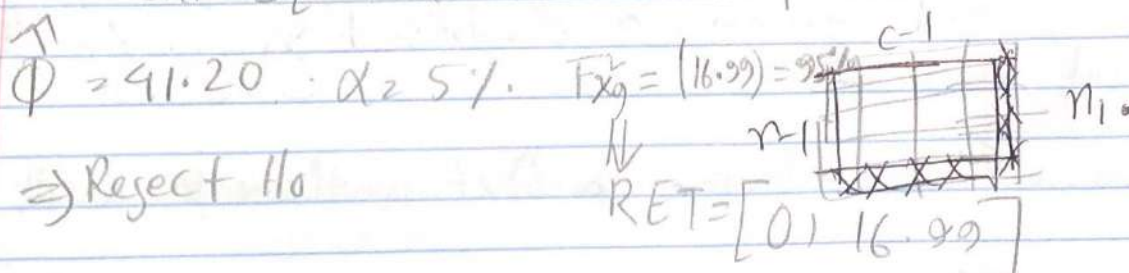 c-1
Φ̂ = 41.20 α = 5%. Fχ²₉ = (16.99) = 95%
r-1 n₁.
⇓
⇒ Reject H₀
RET = [0, 16.99]